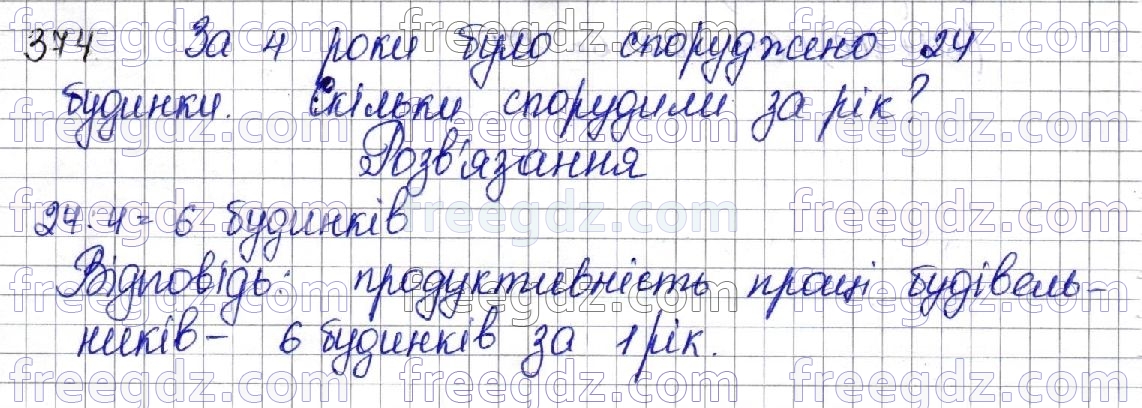 374. За 4 роки було споруджено 24
будинки. Скільки спорудили за рік?
Розв'язання
24:4= 6 будинків
Відповідь: продуктивність праці будівель-
ників – 6 будинків за 1 рік.